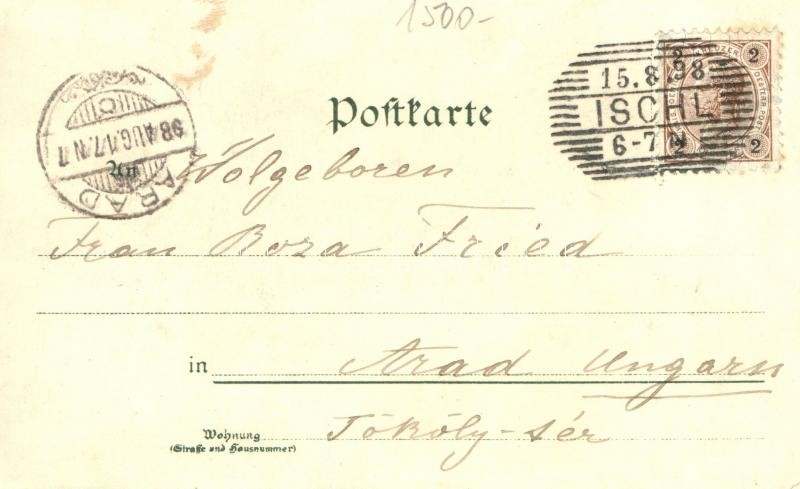 1500-
15.8 98
ISCHL
6-7 N
2 KREUZER 2
2 2
Postkarte
ARAD
98 AUG. 17. N. 7
An Wolgeboren
Frau Roza Fried
in Arad Ungarn
Wohnung
(Straße und Hausnummer)
Tököly-tér